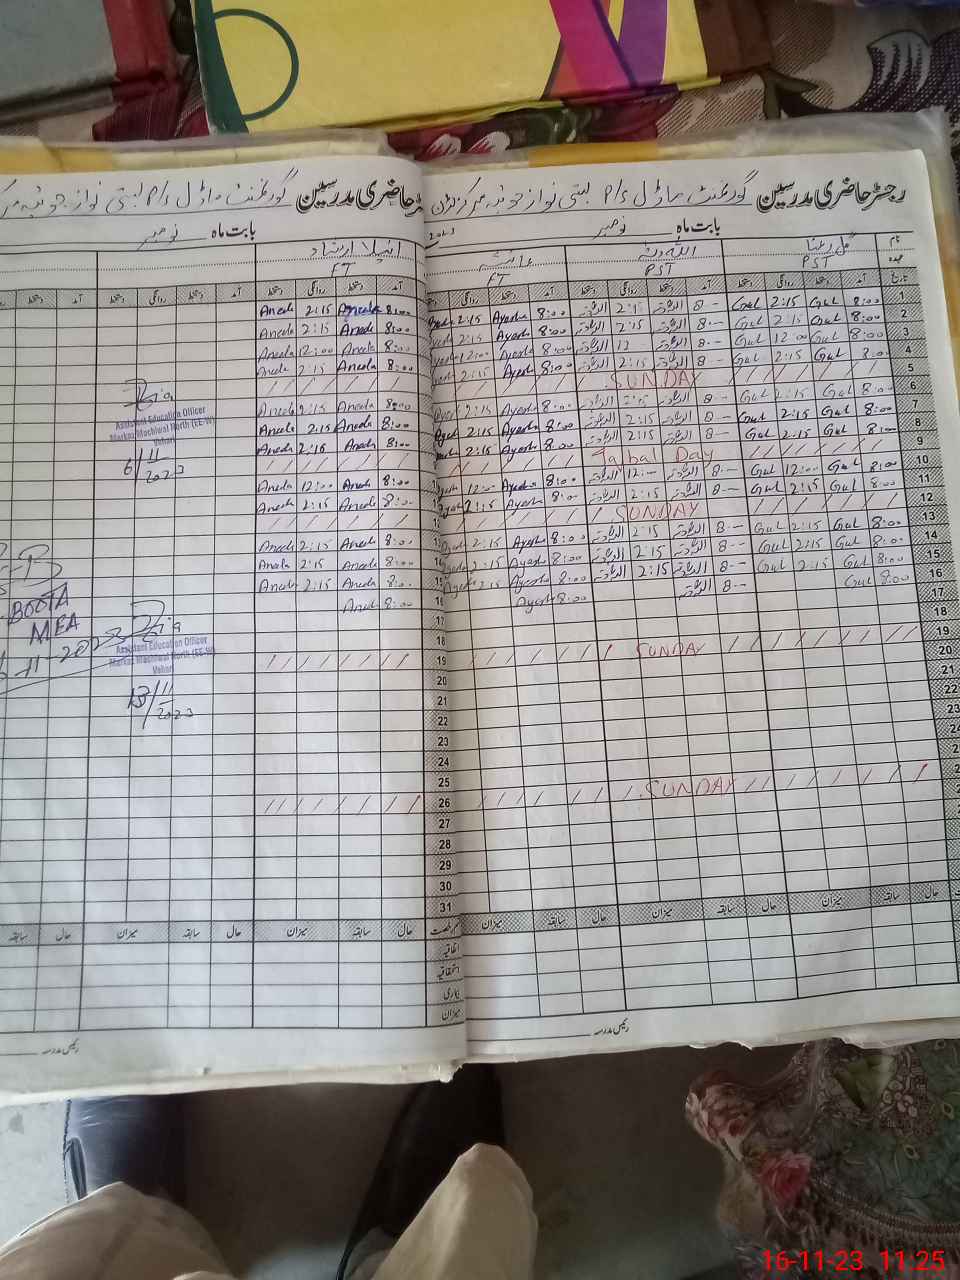 رجسٹر حاضری مدرسین گورنمنٹ ماڈل P/S بستی نواز جوئیہ مرکز
بابت ماہ نومبر 2023
نام گل رعنا اللہ دتہ عائشہ
عہدہ PST PST FT
تاریخ آمد دستخط روانگی دستخط آمد دستخط روانگی دستخط آمد دستخط روانگی دستخط
1 8:00 Gul 2:15 Gul 8-- 2:15 8:00 Ayesha 2:15
2 8:00 Gul 2:15 Gul 8-- 2:15 8:00 Ayesha 2:15
3 8:00 Gul 12:00 Gul 8-- 12 8:00 Ayesha 12:00
4 8:00 Gul 2:15 Gul 8-- 2:15 8:00 Ayesha 2:15
5 SUNDAY
6 8:00 Gul 2:15 Gul 8-- 2:15 8:00 Ayesha 2:15
7 8:00 Gul 2:15 Gul 8-- 2:15 8:00 Ayesha 2:15
8 8:00 Gul 2:15 Gul 8-- 2:15 8:00 Ayesha 2:15
9 Iqbal Day
10 8:00 Gul 12:00 Gul 8-- 12:-- 8:00 Ayesha 12:00
11 8:00 Gul 2:15 Gul 8-- 2:15 8:00 Ayesha 2:15
12 SUNDAY
13 8:00 Gul 2:15 Gul 8-- 2:15 8:00 Ayesha 2:15
14 8:00 Gul 2:15 Gul 8-- 2:15 8:00 Ayesha 2:15
15 8:00 Gul 2:15 Gul 8-- 2:15 8:00 Ayesha 2:15
16 8:00 Gul 8-- 8:00 Ayesha
17
18
19 SUNDAY
20
21
22
23
24
SUNDAY
میزان سابقہ حال میزان سابقہ حال میزان سابقہ
رئیس مدرسہ
رجسٹر حاضری مدرسین گورنمنٹ ماڈل P/S بستی نواز جوئیہ مرکز
بابت ماہ نومبر
انیلا ارشاد
FT
آمد دستخط روانگی دستخط آمد دستخط روانگی دستخط آمد
8:00 Aneela 2:15 Aneela
8:00 Aneela 2:15 Aneela
8:00 Aneela 12:00 Aneela
8:00 Aneela 2:15 Aneela
8:00 Aneela 2:15 Aneela
8:00 Aneela 2:15 Aneela
8:00 Aneela 2:15 Aneela
8:00 Aneela 12:00 Aneela
8:00 Aneela 2:15 Aneela
8:00 Aneela 2:15 Aneela
8:00 Aneela 2:15 Aneela
8:00 Aneela 2:15 Aneela
16 8:00 Aneela
17
18
19
20
21
22
23
24
25
26
27
28
29
30
31
Assistant Education Officer
Markaz Machiwal North (EE-W)
Vehari
6/11
2023
BOOTA
MEA
-11-2023
Assistant Education Officer
Markaz Machiwal North (EE-W)
Vehari
13/11
2023
حال سابقہ میزان حال سابقہ میزان حال سابقہ
اتفاقیہ
استحقاقیہ
بیماری
میزان
رئیس مدرسہ
16-11-23 11:25